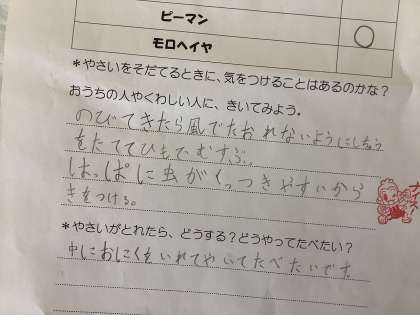 ピーマン
モロヘイヤ
*やさいをそだてるときに、気をつけることはあるのかな?
おうちの人やくわしい人に、きいてみよう。
のびてきたら風でたおれないようにしちゅう
をたててひもでむすぶ。
はっぱに虫がくっつきやすいから
きをつける。
*やさいがとれたら、どうする?どうやってたべたい?
中におにくをいれてやいてたべたいです。